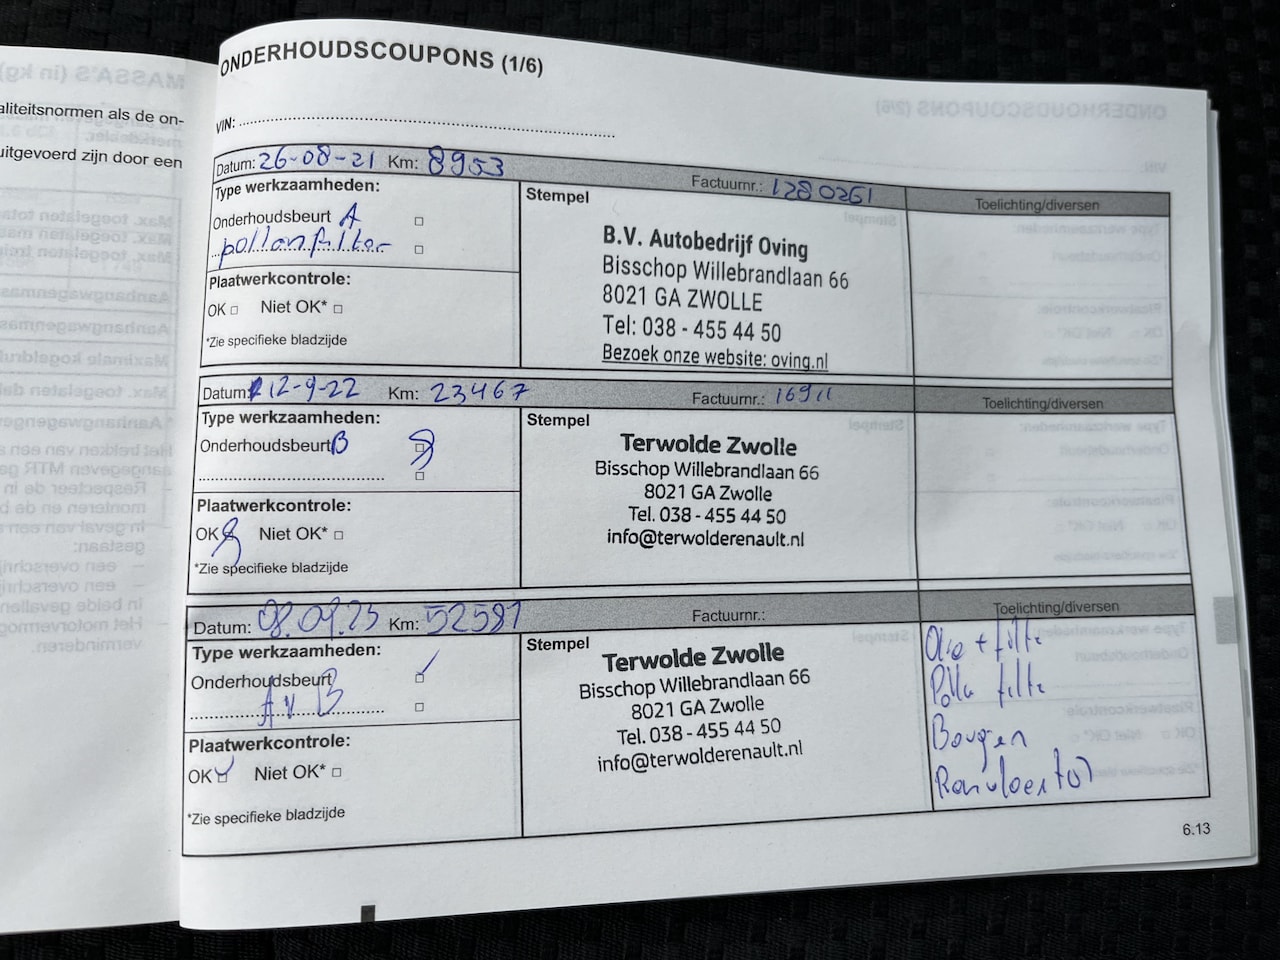 aliteitsnormen als de on-
uitgevoerd zijn door een
ONDERHOUDSCOUPONS (1/6)
VIN:
Datum: 26-08-21 Km: 8953 Factuurnr.: 1280261 Toelichting/diversen
Type werkzaamheden:
Onderhoudsbeurt A
pollenfilter
Plaatwerkcontrole:
OK Niet OK*
*Zie specifieke bladzijde
Stempel
B.V. Autobedrijf Oving
Bisschop Willebrandlaan 66
8021 GA ZWOLLE
Tel: 038 - 455 44 50
Bezoek onze website: oving.nl
Datum: 12-9-22 Km: 23467 Factuurnr.: 16911 Toelichting/diversen
Type werkzaamheden:
Onderhoudsbeurt B
Plaatwerkcontrole:
OK Niet OK*
*Zie specifieke bladzijde
Stempel
Terwolde Zwolle
Bisschop Willebrandlaan 66
8021 GA Zwolle
Tel. 038 - 455 44 50
info@terwolderenault.nl
Datum: 08.09.23 Km: 52581 Factuurnr.: Toelichting/diversen
Type werkzaamheden:
Onderhoudsbeurt
A v B
Plaatwerkcontrole:
OK Niet OK*
*Zie specifieke bladzijde
Stempel
Terwolde Zwolle
Bisschop Willebrandlaan 66
8021 GA Zwolle
Tel. 038 - 455 44 50
info@terwolderenault.nl
Olie + filte
Polle filte
Bougen
Remvloeistof
6.13